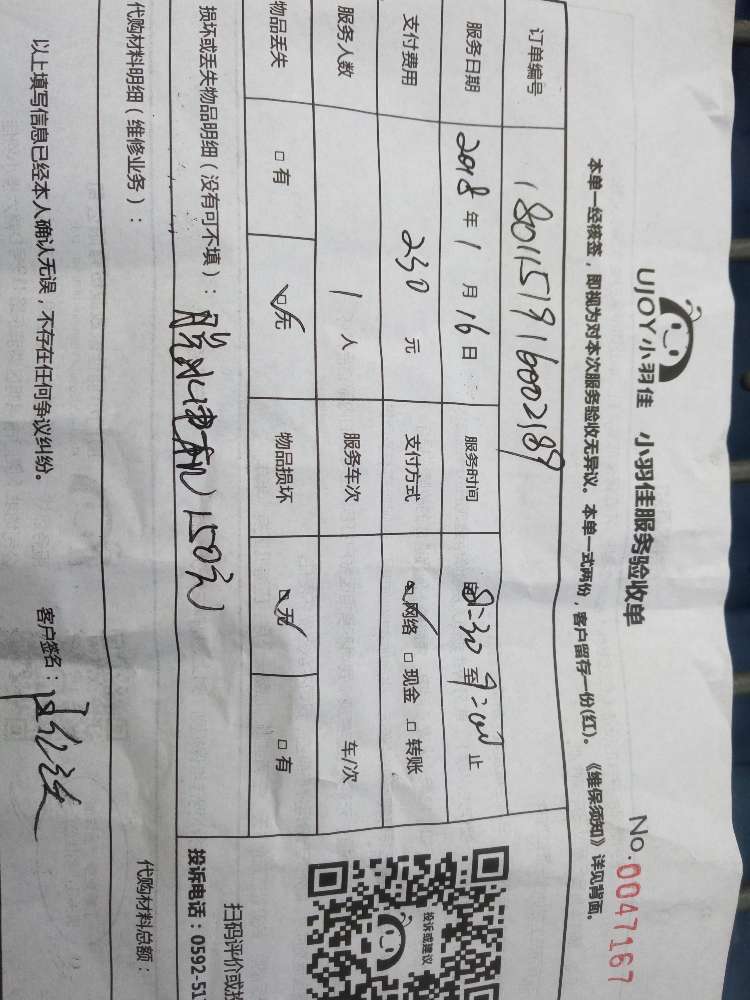 UJOY小羽佳 小羽佳服务验收单
No.0047167
本单一经核签，即视为对本次服务验收无异议。本单一式两份，客户留存一份(红)。《维保须知》详见背面。
订单编号 1801151916002189
服务日期 2018年1月16日 服务时间 8:30至9:00止
支付费用 230元 支付方式 □网络 □现金 □转账
服务人数 1人 服务车次 车/次
物品丢失 □有 □无 物品损坏 □无 □有
损坏或丢失物品明细（没有可不填）： 脱水 150元
代购材料明细（维修业务）： 代购材料总额：
以上填写信息已经本人确认无误，不存在任何争议纠纷。 客户签名：
投诉或建议
扫码评价或
投诉电话：0592-51